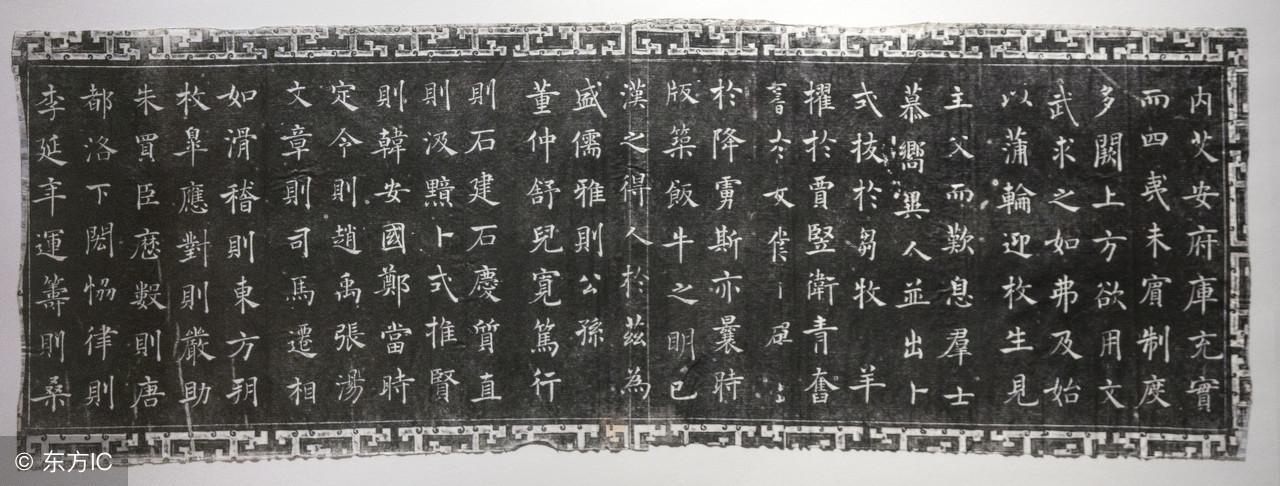 内艾安府庫充實
而四夷未賔制度
多闕上方欲用文
武求之如弗及始
以蒲輪迎枚生見
主父而歎息羣士
慕嚮異人並出卜
式拔於芻牧羊
擢於賈竪衛青奮
於降虜斯亦曩時
版築飯牛之明已
漢之得人於茲為
盛儒雅則公孫
董仲舒兒寛篤行
則石建石慶質直
則汲黯卜式推賢
則韓安國鄭當時
定令則趙禹張湯
文章則司馬遷相
如滑稽則東方朔
枚皐應對則嚴助
朱買臣歷數則唐
都洛下閎恊律則
李延年運籌則桑
© 东方IC